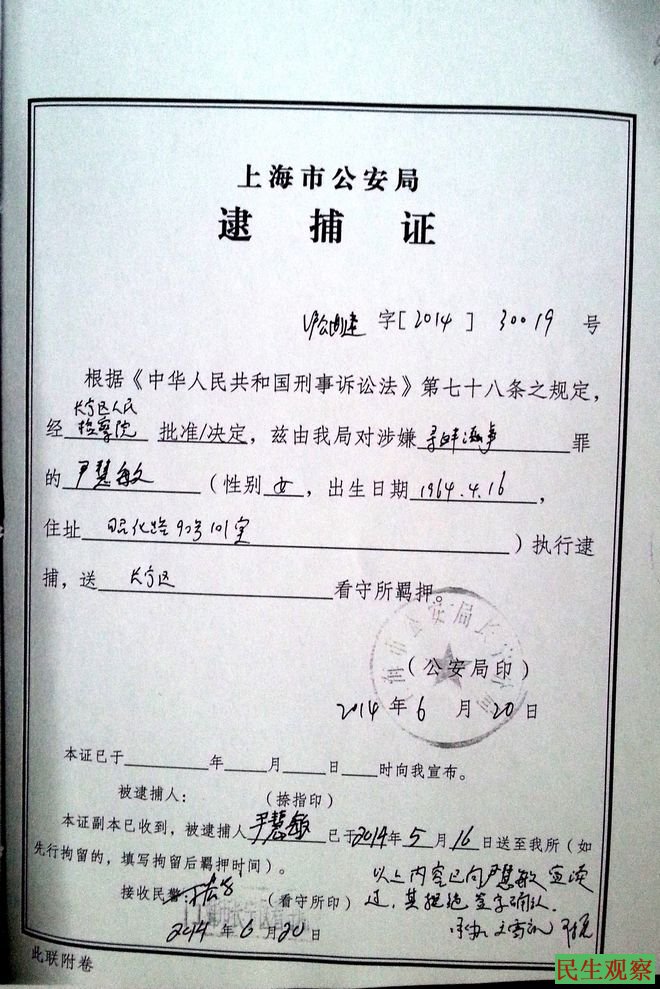 上海市公安局
逮捕证
字[2014] 30019 号
根据《中华人民共和国刑事诉讼法》第七十八条之规定，
长宁区人民
经检察院批准/决定，兹由我局对涉嫌寻衅滋事罪
的尹慧敏（性别女，出生日期1964.4.16，
住址昭化路90号101室）执行逮
捕，送长宁区看守所羁押。
（公安局印）
2014年6月20日
本证已于 年 月 日 时向我宣布。
被逮捕人： （捺指印）
本证副本已收到，被逮捕人尹慧敏已于2014年5月16日送至我所（如
先行拘留的，填写拘留后羁押时间）。
以上内容已向尹慧敏宣读
接收民警： （看守所印）
过，其拒绝签字确认。
2014年6月20日
此联附卷
民生观察